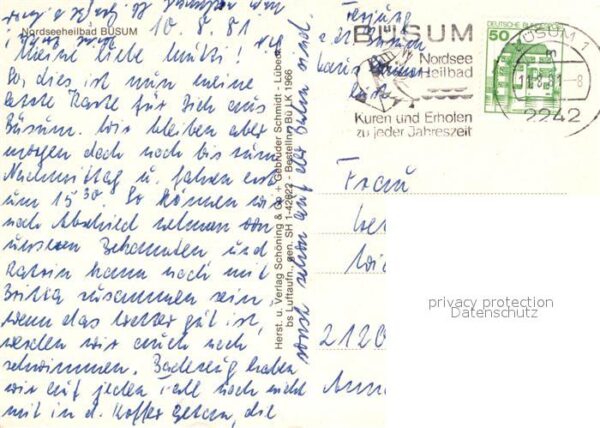 Nordseeheilbad BÜSUM
10.8.81
Meine liebe Mutti!
So, dies ist nun meine
letzte Karte für Dich aus
Büsum. Wir bleiben aber
morgen doch noch bis zum
Nachmittag u. fahren erst
um 15 30. So können wir
noch Abschied nehmen von
unseren Bekannten und
Katrin kann noch mit
Britta zusammen sein.
Wenn das Wetter gut ist,
werden wir auch noch
schwimmen. Badezeug haben
wir auf jeden Fall noch nicht
mit in d. Koffer getan, die
sonst schon auf der Bahn sind.
Herst. u. Verlag Schöning & Co + Gebrüder Schmidt - Lübeck
bs Luftaufn., gen. SH 1-42622 - Bestellnr. BÜ LK 1966
BÜSUM
Nordsee
Heilbad
Kuren und Erholen
zu jeder Jahreszeit
DEUTSCHE BUNDESPOST
50
BÜSUM 1
2242
Frau
2120
privacy protection
Datenschutz